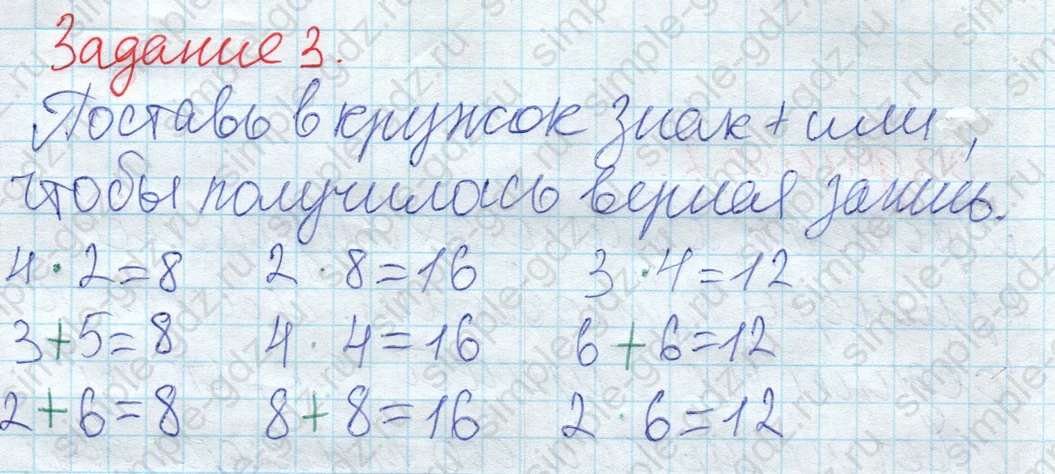 Задание 3.
Поставь в кружок знак + или ,
чтобы получилась верная запись.
4 · 2 = 8 2 · 8 = 16 3 · 4 = 12
3 + 5 = 8 4 · 4 = 16 6 + 6 = 12
2 + 6 = 8 8 + 8 = 16 2 · 6 = 12